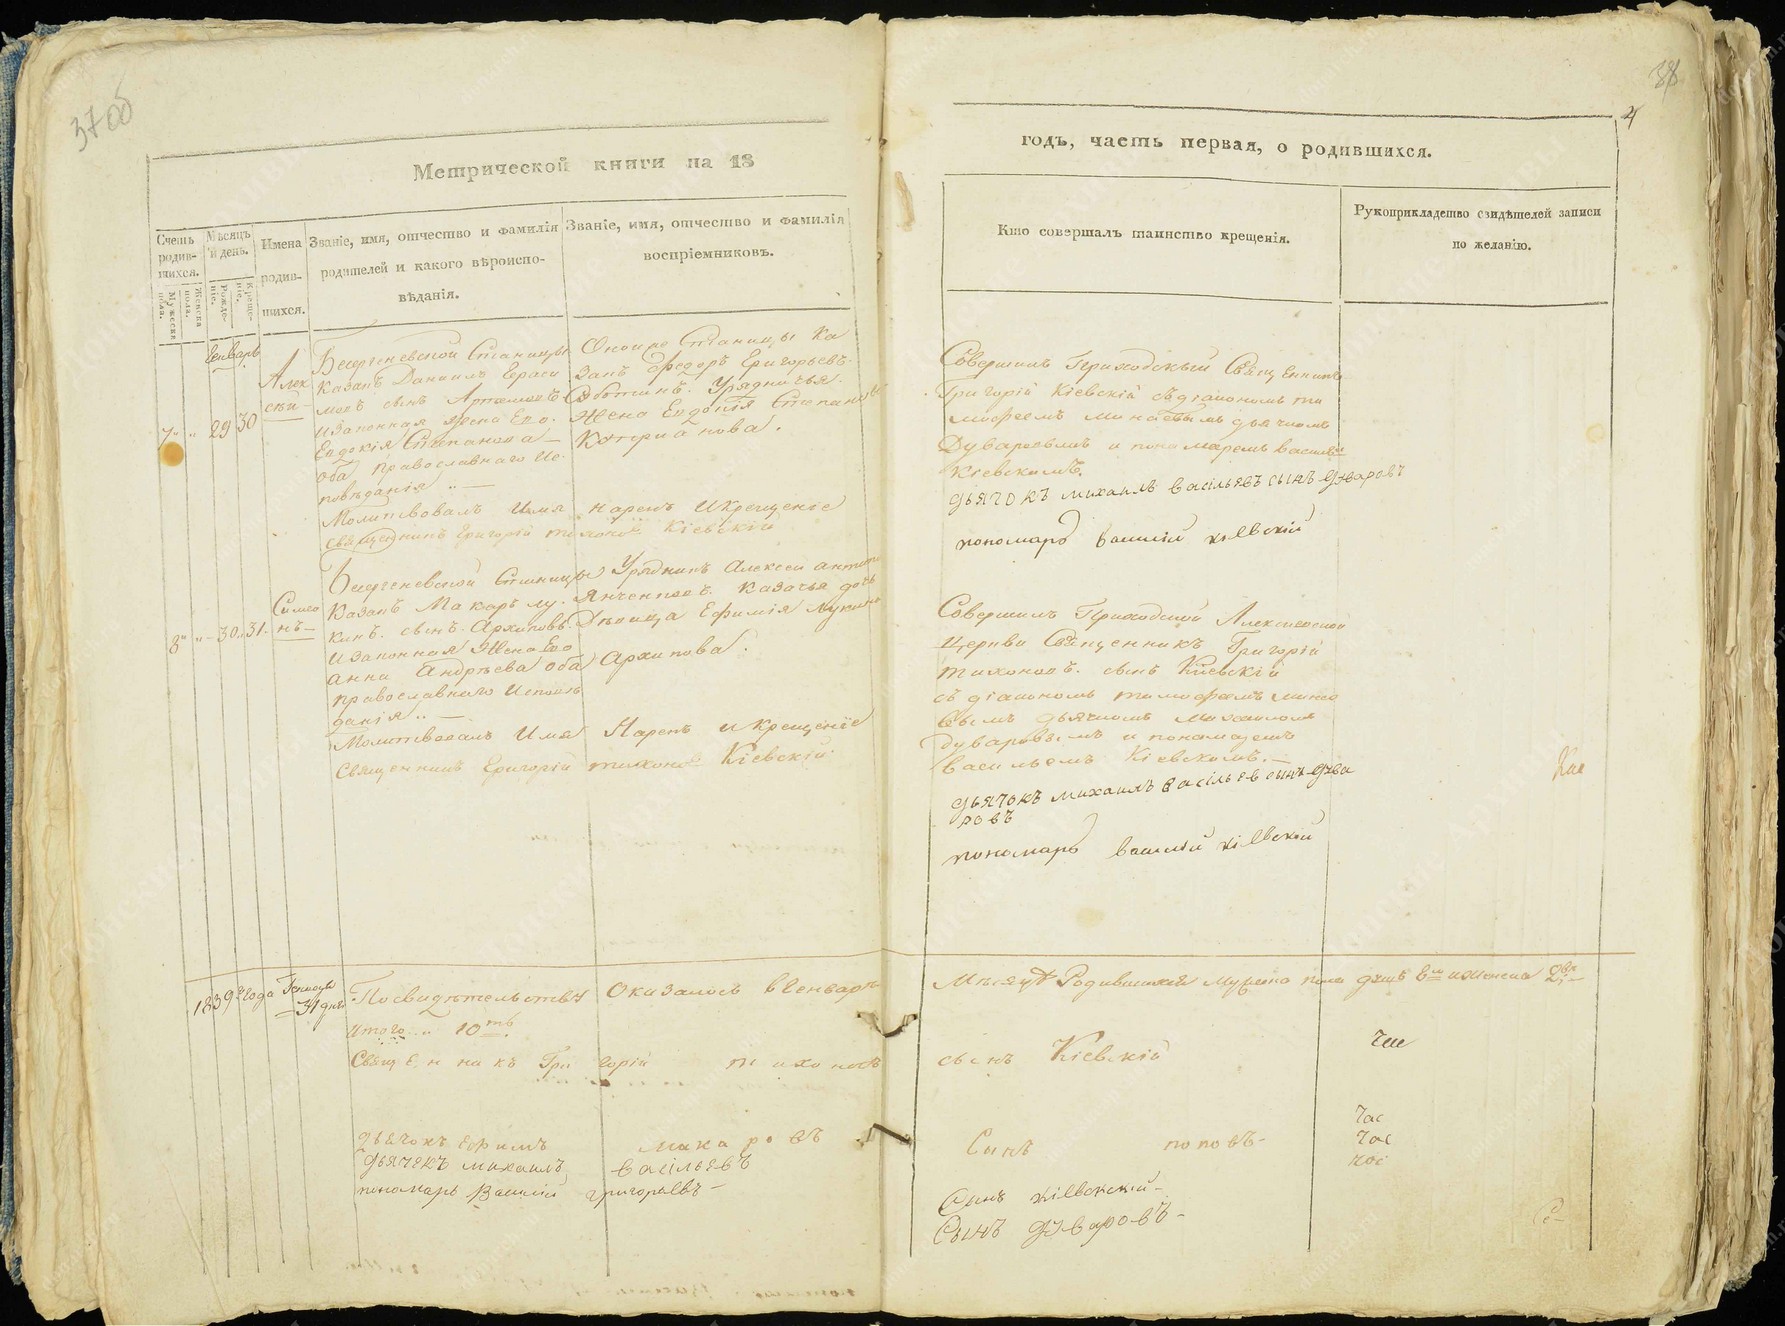 37об
38
4
Метрической книги на 18
годъ, часть первая, о родившихся.
Счетъ родив-шихся.
Мужеска пола.
Женска пола.
Мѣсяцъ и день.
Рожде-ніе.
Креще-ніе.
Имена родив-шихся.
Званіе, имя, отчество и фамилія
родителей и какого вѣроиспо-
вѣданія.
Званіе, имя, отчество и фамилія
воспріемниковъ.
Кто совершалъ таинство крещенія.
Рукоприкладство свидѣтелей записи
по желанію.
Генварь
7 " 29 30
Алек
сѣй
Бесергеневской Станицы
казакъ Даниилъ Гераси
мовъ сынъ Артемовъ
изаконная жена Его
Евдокія Степанова
оба православнаго ис-
повѣданія
Оной же Станицы Ка
закъ Федоръ Григорьевъ
Жена Евдокія Степанова
Молитвовалъ Имя нарекъ И крещеніе
священникъ Григорій Тихоновъ Кіевскій
Совершилъ Приходскій Священникъ
Григорій Кіевскій съ діакономъ ти
мофеемъ минаевымъ дьячкомъ
Дуваровымъ и пономаремъ василіемъ
Кіевскимъ.
дьячокъ михаилъ васільевъ сынъ дуваровъ
пономарь василій кіевскій
8 " 30 31
Симео
нъ
Бесергеневской Станицы
Казакъ Макаръ лу-
кинъ сынъ Архиповъ
изаконная Жена Его
анна Андрѣева оба
православнаго исповѣ
данія
Урядникъ Алексей
казачья дочь
Дѣвица Ефимія Лукина
Архипова.
Молитвовалъ Имя Нарекъ и крещеніе
Священникъ Григорій тихоновъ Кіевскій
Совершилъ Приходской Алексеевской
Церкви Священникъ Григорій
тихоновъ сынъ Кіевскій
съ діакономъ тимофеемъ минае
вымъ дьячкомъ михаиломъ
дуваровымъ и пономаремъ
васильемъ Кіевскимъ.
дьячокъ михаилъ васільевъ сынъ дува
ровъ
пономарь василій кіевскій
1839го года Генваря 31 дня
По свидѣтельству Оказалось вгенварѣ
Мѣсяцѣ Родившихся мужеска пола душъ 8м и женска 2вѣ
Итого 10ть
Священникъ Григорій тихоновъ сынъ Кіевскій
дьячокъ Ефимъ макаровъ Сынъ поповъ
дьячекъ михаилъ васільевъ
пономарь Василій григорьевъ
Сынъ кіевскій
Сынъ дуваровъ